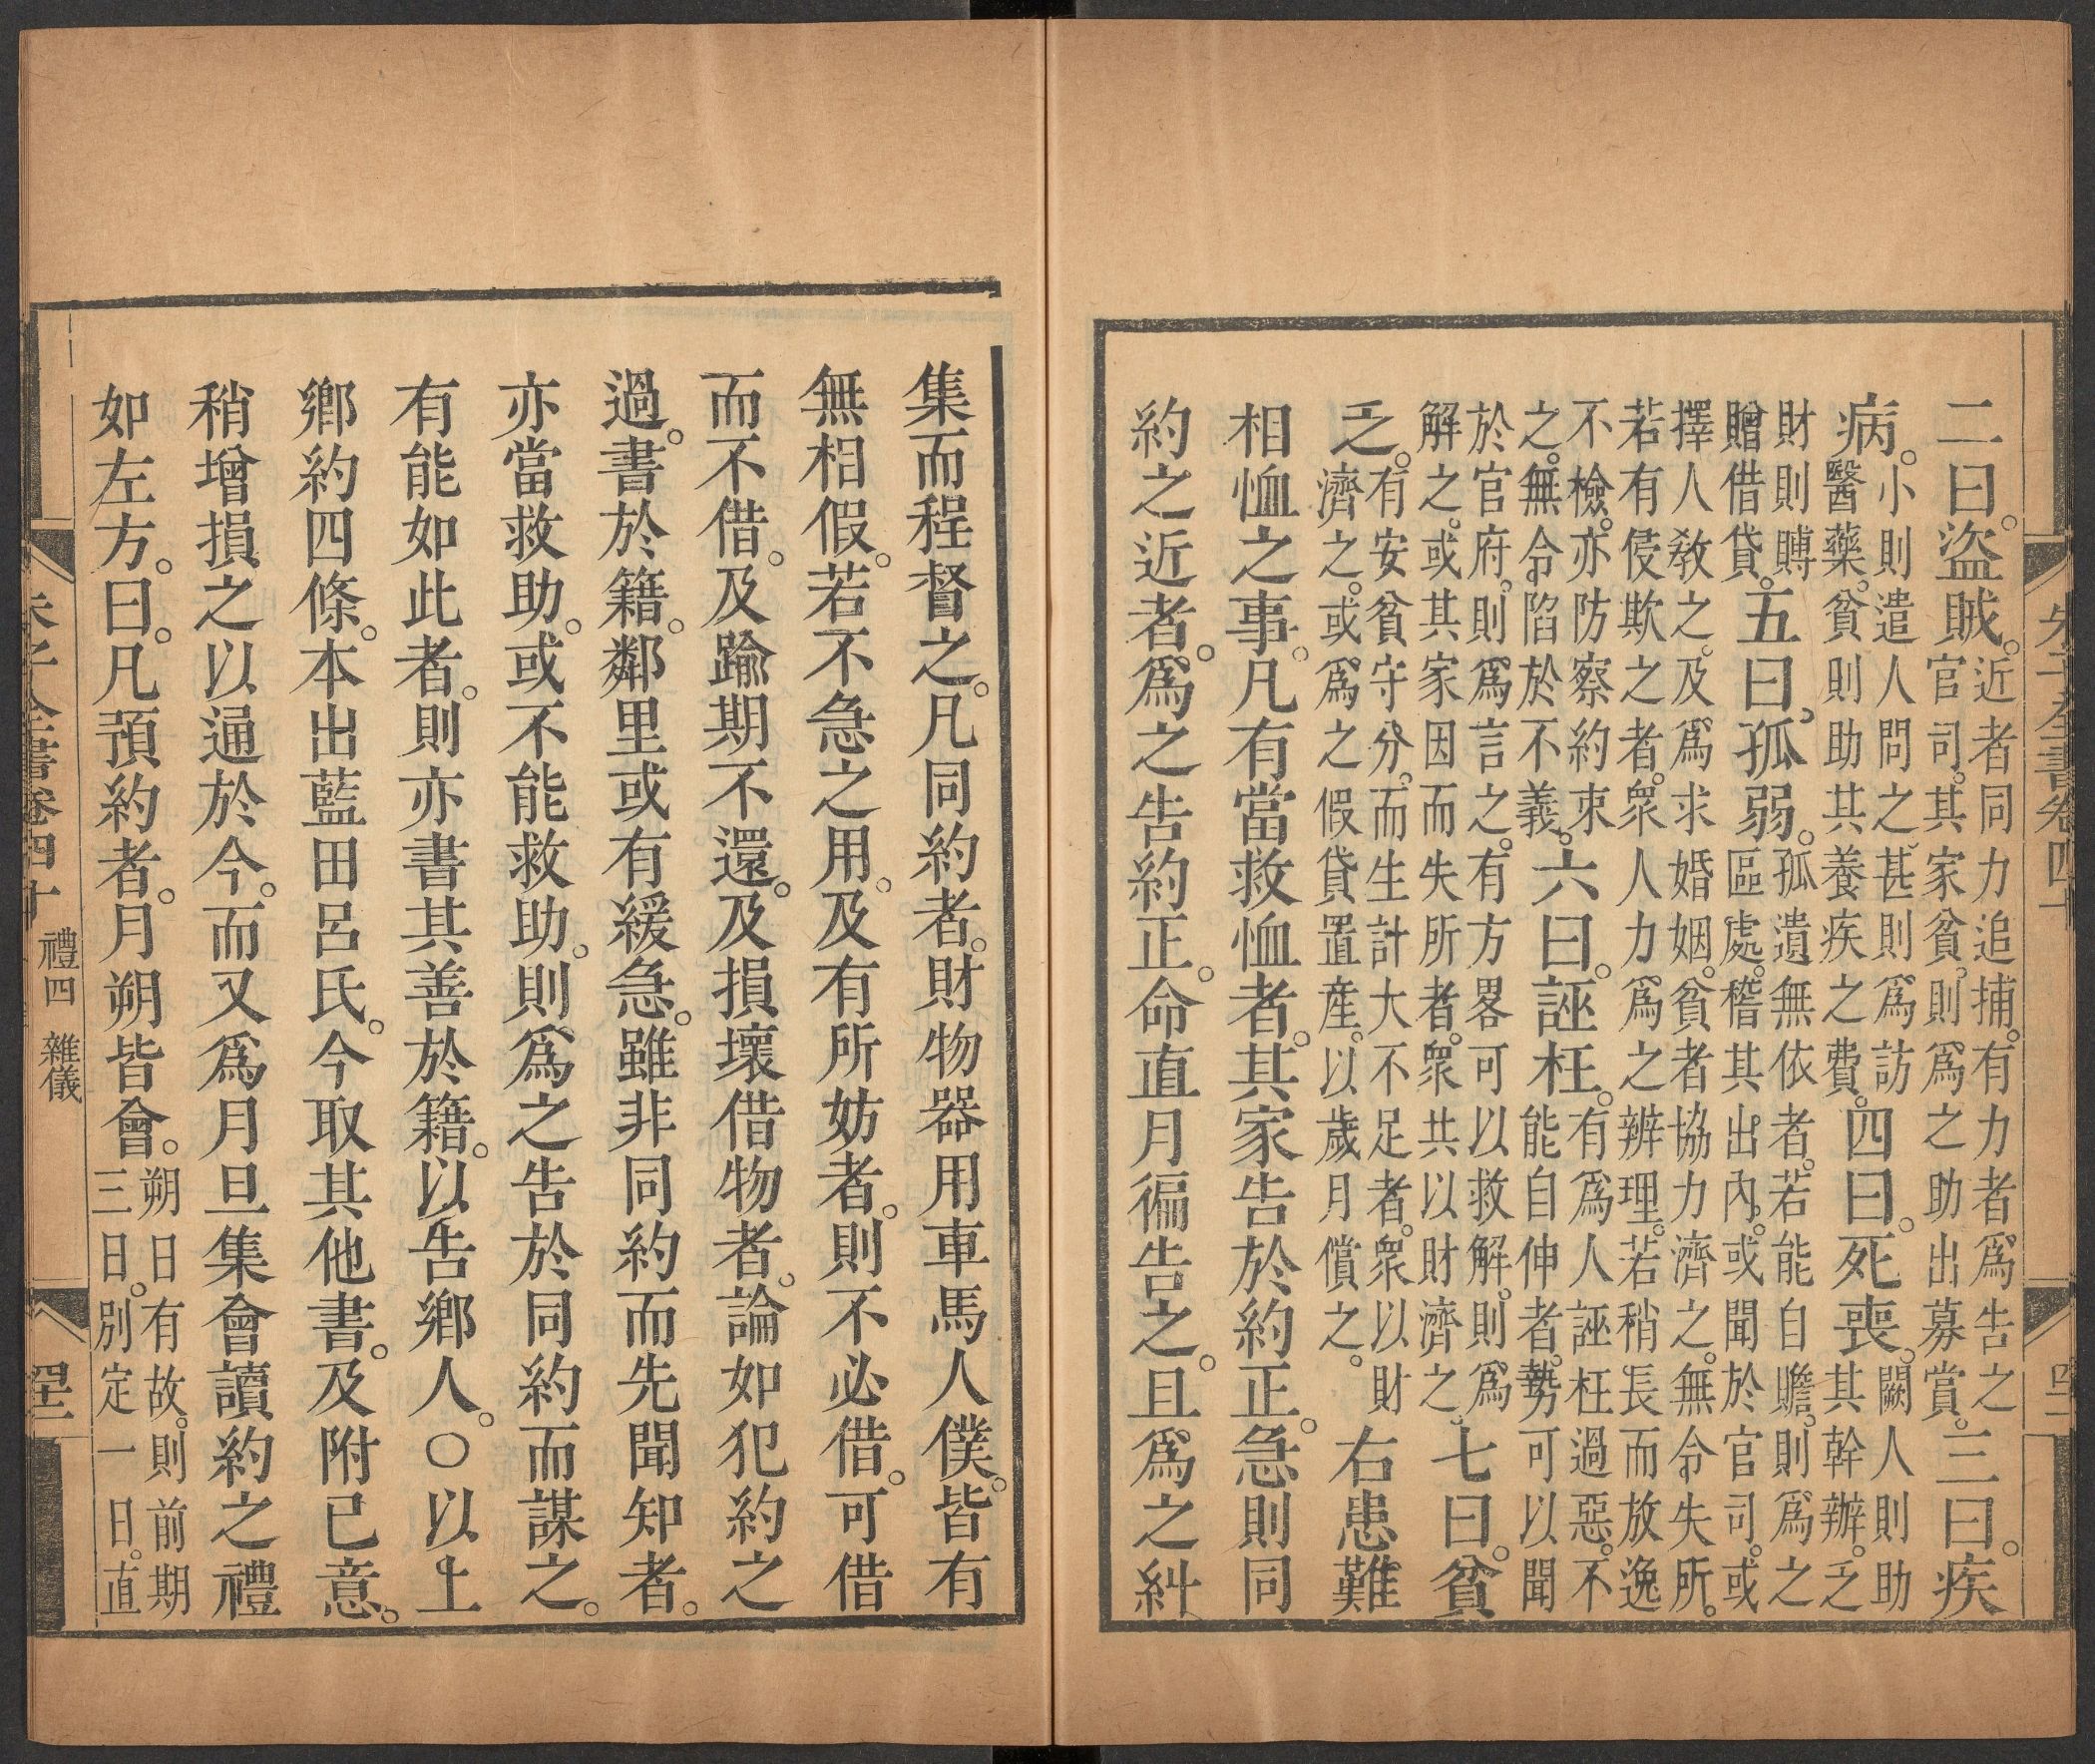 二曰。盜賊。近者同力追捕。有力者爲告之官司。其家貧。則爲之助出募賞。三曰。疾
病。小則遣人問之。甚則爲訪醫藥。貧則助其養疾之費。四曰。死喪。闕人則助其幹辦。乏
財則賻贈借貸。五曰。孤弱。孤遺無依者。若能自贍。則爲之區處。稽其出內。或聞於官司。或
擇人敎之。及爲求婚姻。貧者協力濟之。無令失所。若有侵欺之者。衆人力爲之辨理。若稍長而放逸
不檢。亦防察約束之。無令陷於不義。六曰。誣枉。有爲人誣枉過惡。不能自伸者。勢可以聞
於官府。則爲言之。有方畧可以救解。則爲解之。或其家因而失所者。衆共以財濟之。七曰。貧
乏。有安貧守分。而生計大不足者。衆以財濟之。或爲之假貸置產。以歲月償之。右患難
相恤之事。凡有當救恤者。其家告於約正。急則同
約之近者。爲之告約正。命直月徧告之。且爲之糾
集而程督之。凡同約者。財物器用車馬人僕。皆有
無相假。若不急之用。及有所妨者。則不必借。可借
而不借。及踰期不還。及損壞借物者。論如犯約之
過。書於籍。鄰里或有緩急。雖非同約而先聞知者。
亦當救助。或不能救助。則爲之告於同約而謀之。
有能如此者。則亦書其善於籍。以告鄉人。○以上
鄉約四條。本出藍田呂氏。今取其他書。及附已意。
稍增損之以通於今。而又爲月旦集會讀約之禮
如左方。曰。凡預約者。月朔皆會。朔日有故。則前期三日。別定一日。直
禮四 雜儀